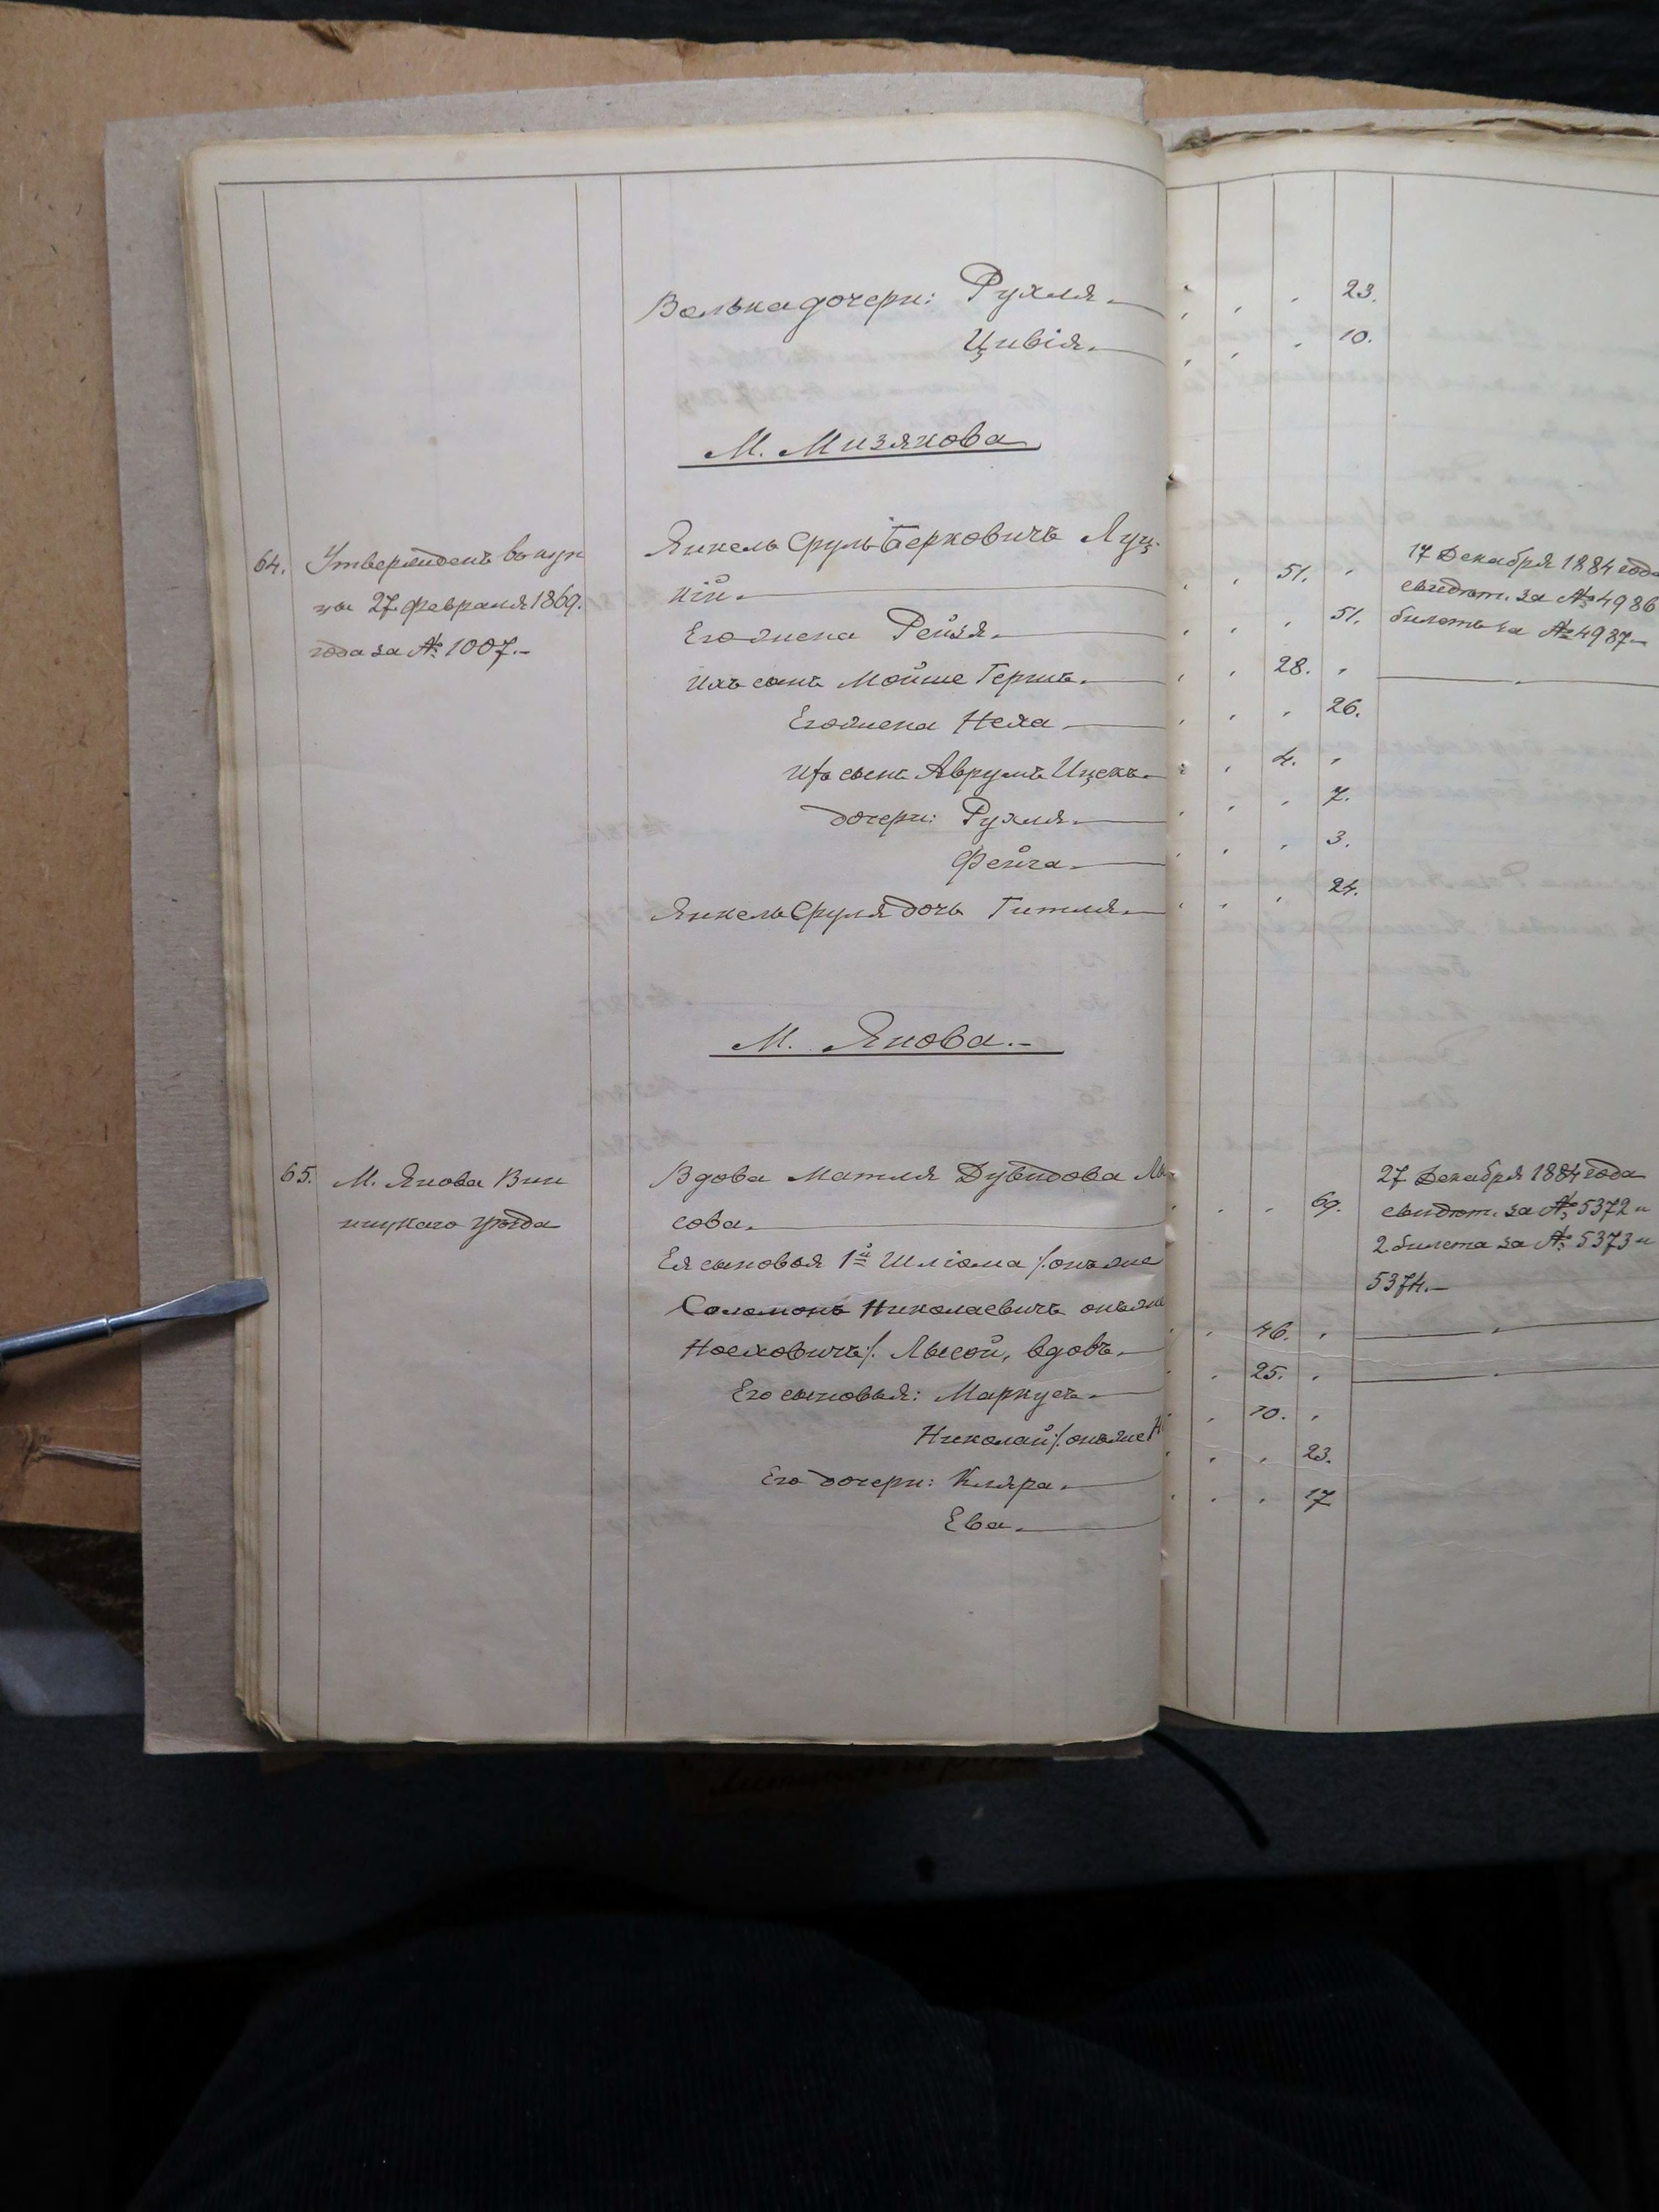 Волька дочери: Рухля. 23.
Цивія. 10.
М. Мизякова
64. Утвержденъ въ куп Янкель Сруль Берковичъ Луц-
цы 27 февраля 1869. кій. 51. 17 Декабря 1884 года
года за № 1007.- свидѣт. за № 4986
Его жена Рейзя. 51. билетъ за № 4987.-
Ихъ сынъ Мойше Гершъ. 28.
Его жена Неха. 26.
Ихъ сынъ Аврумъ Ицекъ. 4.
дочери: Рухля. 7.
Фейга. 3.
Янкель Сруля дочь Гитля. 24.
М. Янова.-
65. М. Янова Вин Вдова Матля Дувидова Лы
ницкаго уѣзда сова. 69. 27 Декабря 1884 года
свидѣт. за № 5372 и
2 билета за № 5373 и
5374.-
Ея сыновья 1й Шліома /. онъ же
Соломонъ Николаевичъ онъ же
Носковичъ /. Лысой, вдовъ. 46.
Его сыновья: Маркусъ. 25.
Николай /. онъ же 10.
Его дочери: Кляра. 23.
Ева. 17